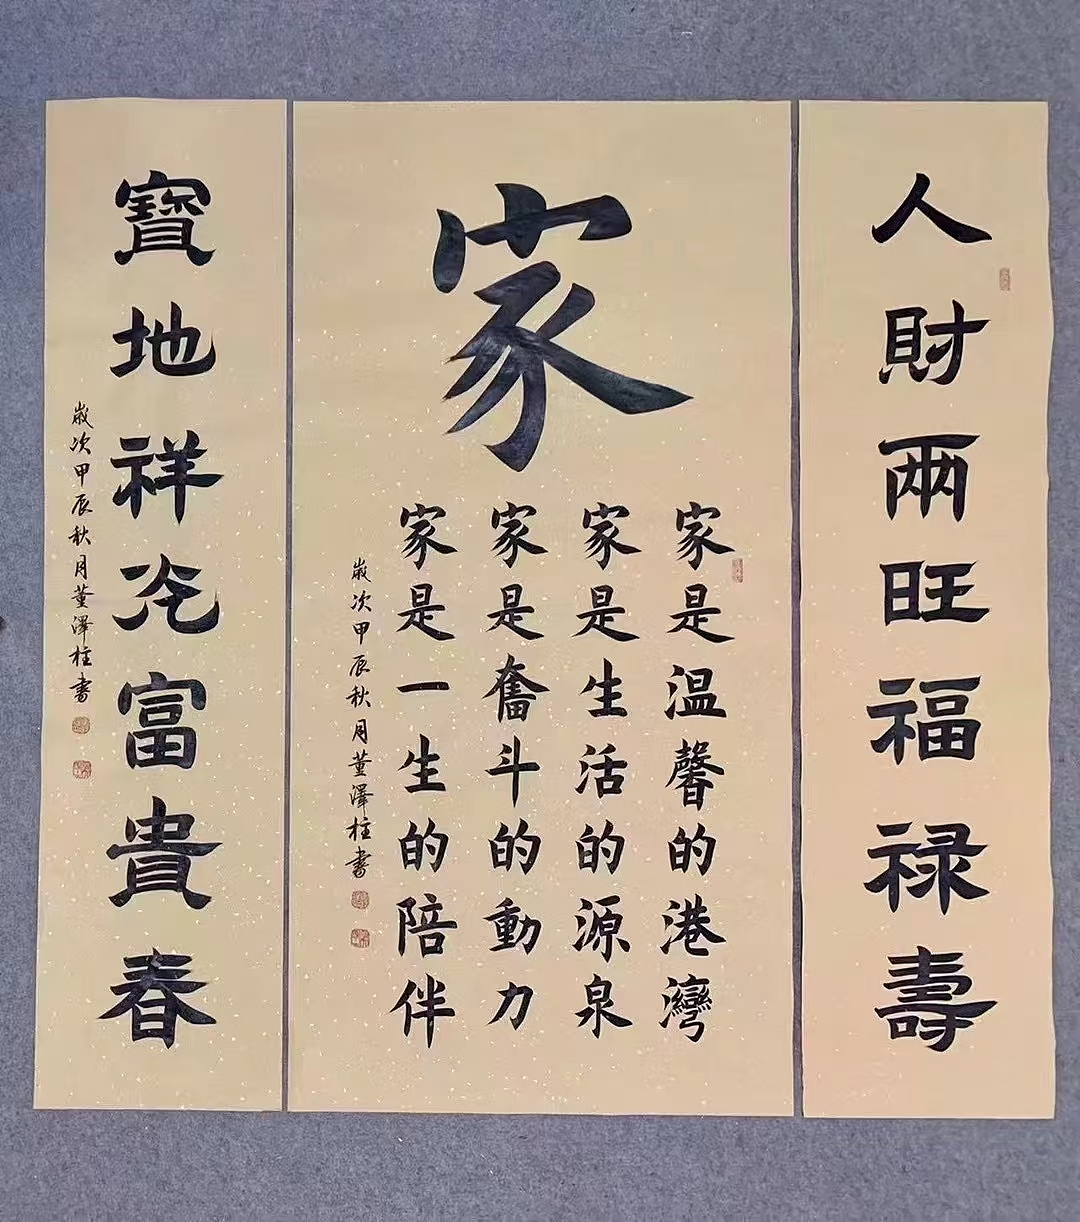 人財兩旺福禄壽
家
家是温馨的港灣
家是生活的源泉
家是奮斗的動力
家是一生的陪伴
歲次甲辰秋月董澤柱書
寶地祥光富貴春
歲次甲辰秋月董澤柱書